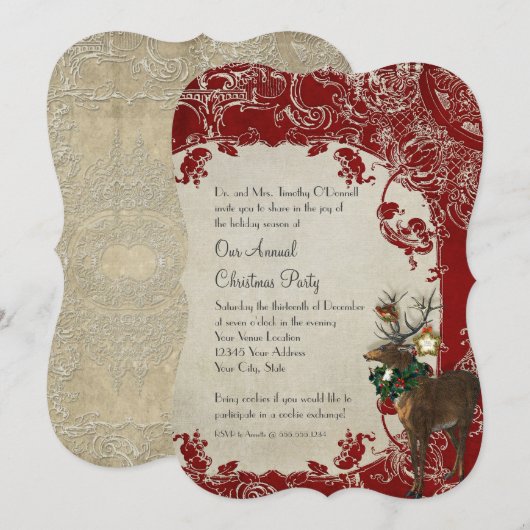 Dr. and Mrs. Timothy O'Donnell
invite you to share in the joy of
the holiday season at
Our Annual
Christmas Party
Saturday the thirteenth of December
at seven o'clock in the evening
Your Venue Location
12345 Your Address
Your City, State
Bring cookies if you would like to
participate in a cookie exchange!
RSVP to Annette @ 555.555.1234